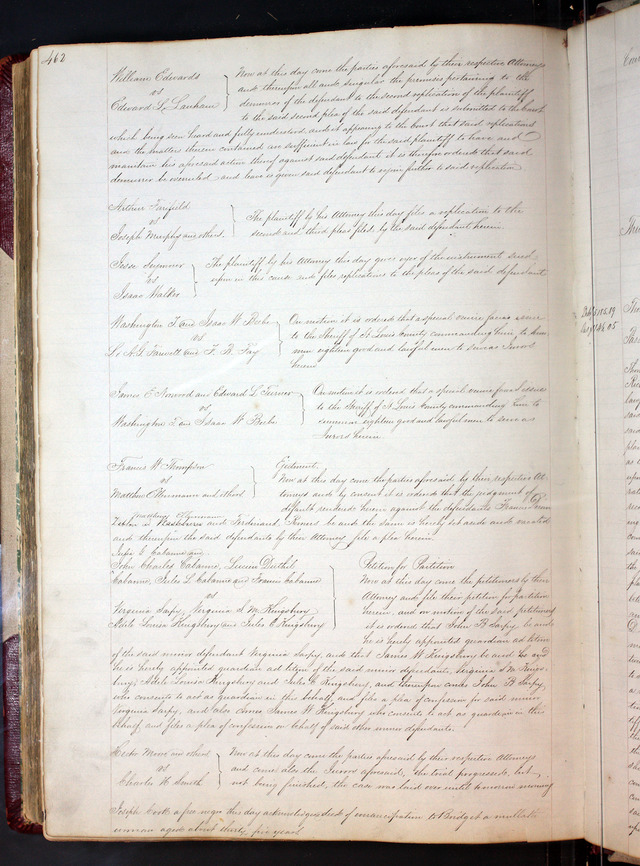 462
William Edwards
vs
Edward L. Lanham
Now at this day come the parties aforesaid by their respective Attorneys
and thereupon all and singular the premises pertaining to the
demurrer of the defendant to the second replication of the plaintiff
to the said second plea of the said defendant is submitted to the Court
which being seen heard and fully understood and it appearing to the Court that said replication
and the matters therein contained are sufficient in law for the said plaintiff to have and
maintain his aforesaid action thereof against said defendant it is therefore ordered that said
demurrer be overruled and leave is given said defendant to rejoin further to said replication
Arthur Fairfield
vs
Joseph Murphy and others
The plaintiff by his Attorney this day files a replication to the
second and third pleas filed by the said defendant herein
Jesse Seymour
vs
Isaac Walker
The plaintiff by his Attorney this day gives oyer of the instrument sued
upon in this cause and files replications to the pleas of the said defendant
Washington T. and Isaac W. Beebe
vs
L. A. G. Farwell and F. R. Fay
On motion it is ordered that a special venire facias issue
to the Sheriff of St Louis County commanding him to summon
eighteen good and lawful men to serve as Jurors
herein
James E. Norwood and Edward L. Turner
vs
Washington T. and Isaac W. Beebe
On motion it is ordered that a special venire facias issue
to the Sheriff of St Louis County commanding him to
summon eighteen good and lawful men to serve as
Jurors herein
Francis W. Thompson
vs
and others
Ejectment.
Now at this day come the parties aforesaid by their respective At-
torneys and by consent it is ordered that the judgment by
default rendered herein against the defendants
and Ferdinand be and the same is hereby set aside and vacated
and thereupon the said defendants by their Attorney file a plea herein
Julia C. Cabanne and
John Charles Cabanne, Lucien Duthil
Cabanne, Jules L. Cabanne and Cabanne
vs
Virginia Sarpy, Virginia S. M. Kingsbury
Adele Louisa Kingsbury and Jules C. Kingsbury
Petition for Partition
Now at this day come the petitioners by their
Attorney and file their petition for partition
herein, and on motion of the said petitioners
it is ordered that John B. Sarpy, be and
he is hereby appointed guardian ad litem
of the said minor defendant Virginia Sarpy and that James W. Kingsbury be and he
is hereby appointed guardian ad litem of the said minor defendants, Virginia S. M. Kings-
bury, Adele Louisa Kingsbury and Jules C. Kingsbury, and thereupon comes John B Sarpy,
who consents to act as guardian in this behalf and files a plea of confession for said minor
Virginia Sarpy, and also comes James W. Kingsbury who consents to act as guardian in this
behalf and files a plea of confession on behalf of said other minor defendants.
Hester Moore and others
vs
Charles H. Smith
Now at this day come the parties aforesaid by their respective Attorneys
and come also the Jurors aforesaid, the trial progressed, but
not being finished, the case was laid over until tomorrow morning
Joseph Cook a free negro this day acknowledges deed of emancipation to Bridget a mulatto
woman aged about thirty five years